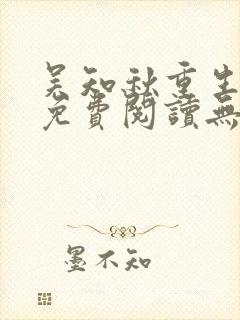 吴知秋重生
免費閱讀無
墨不知